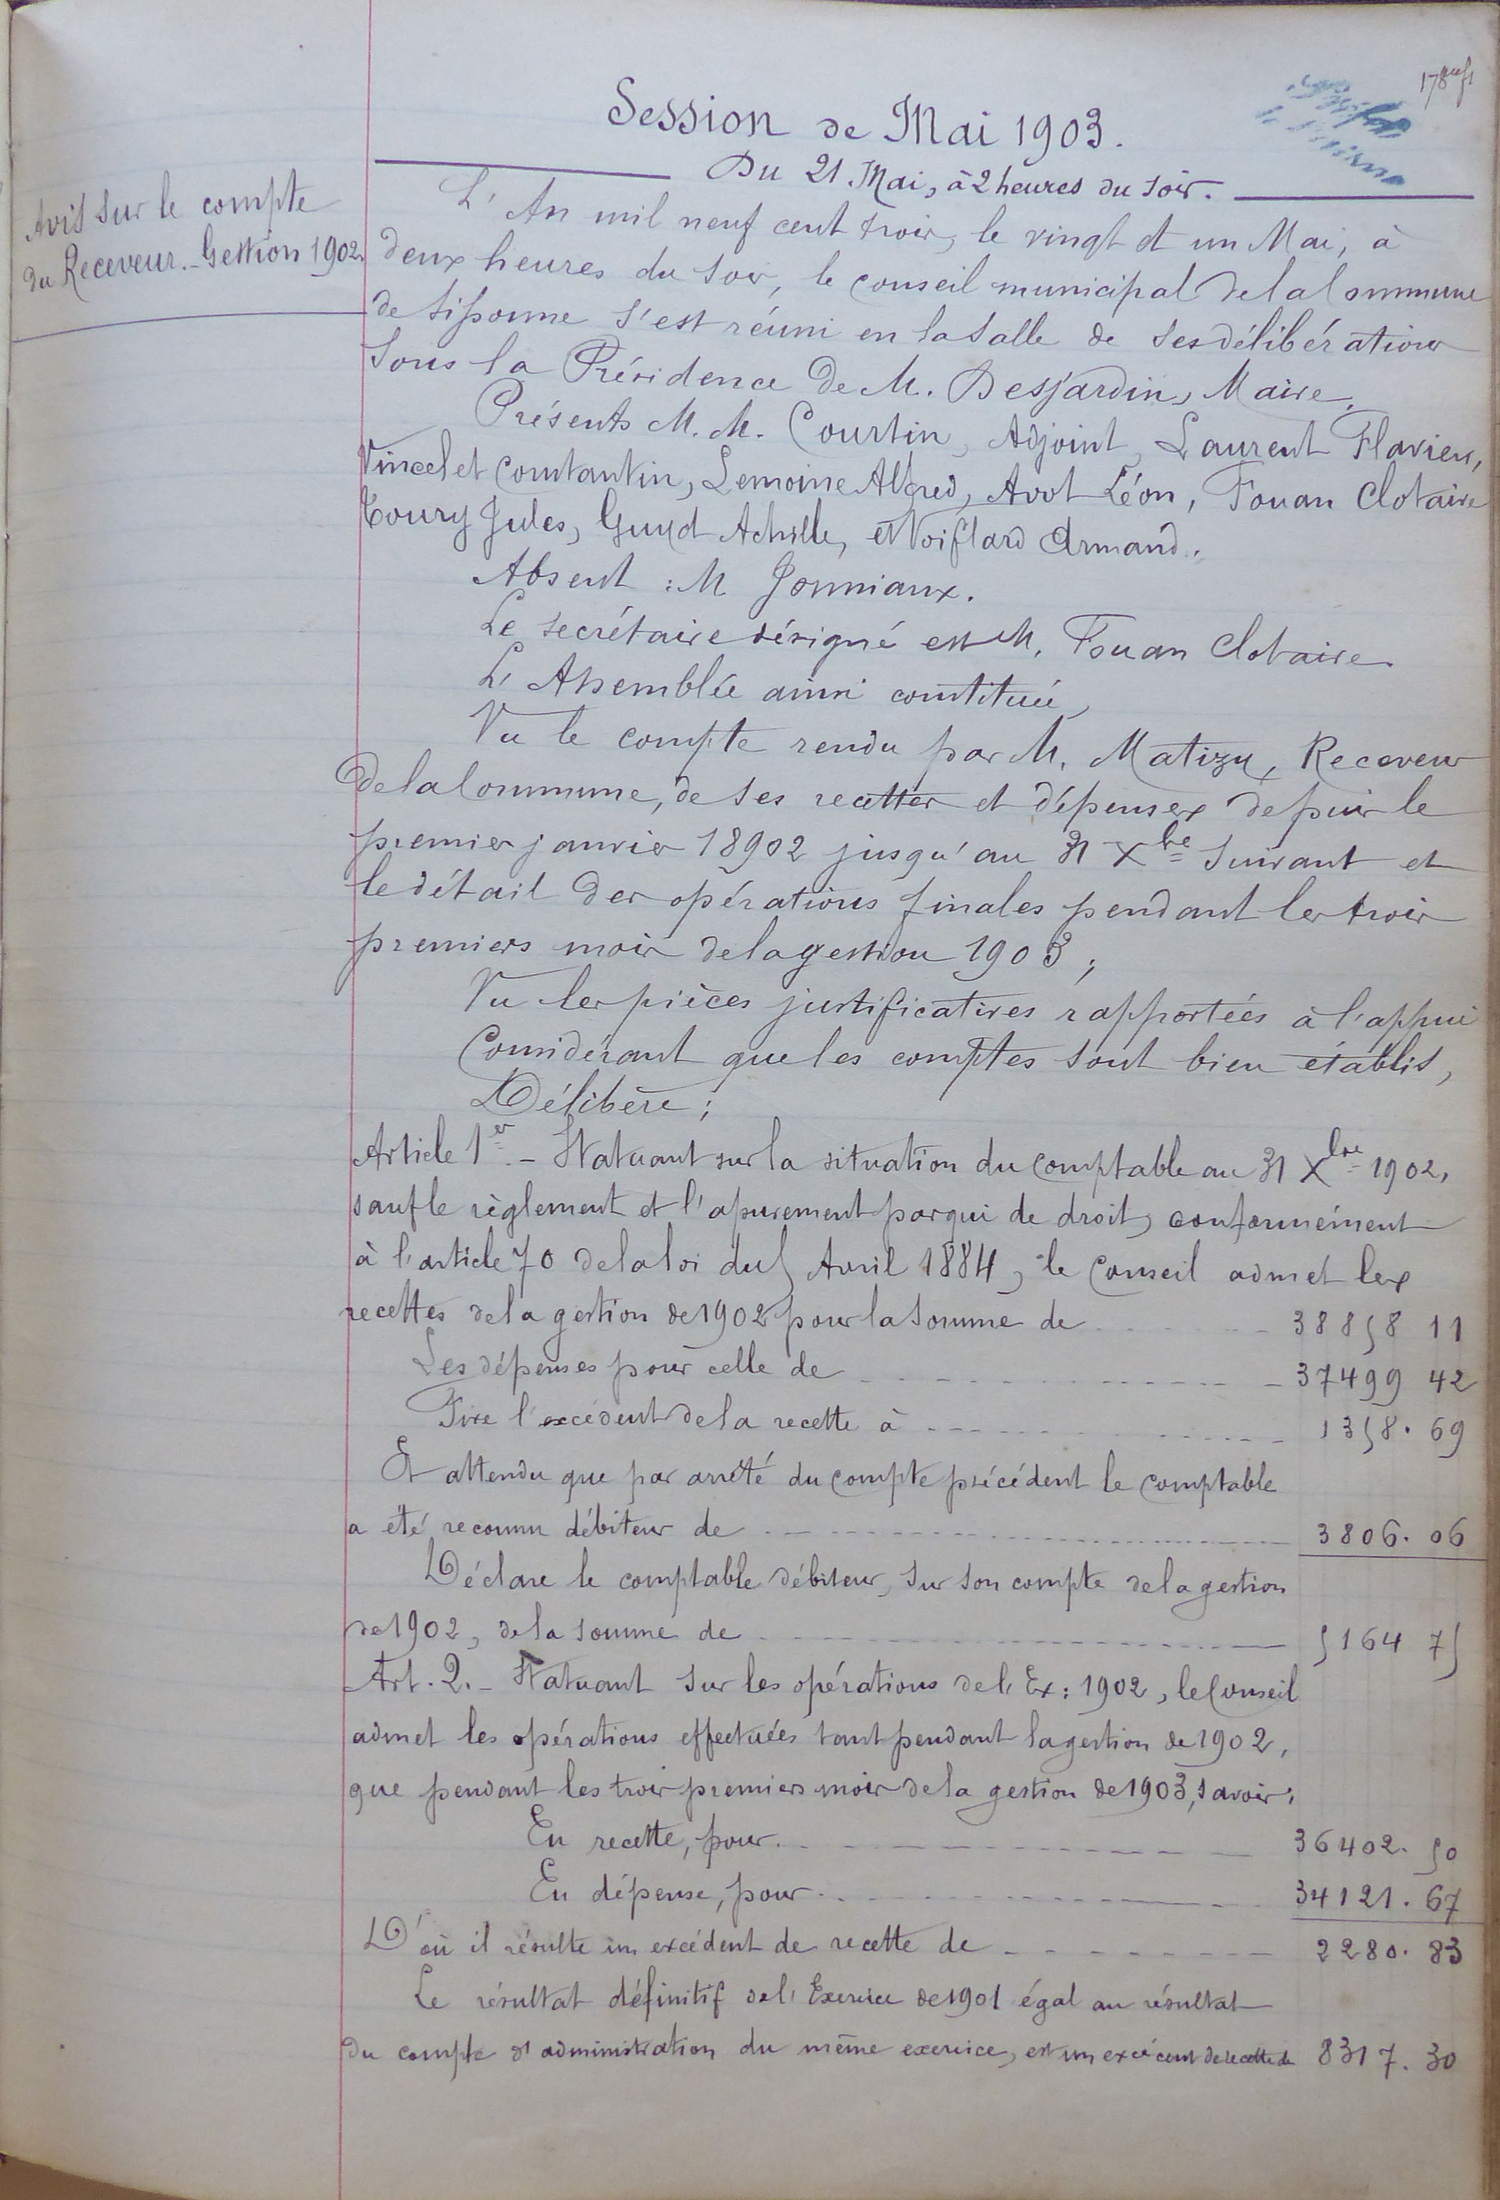 Session de Mai 1903.
Du 21 Mai, à 2 heures du soir.
Avis sur le compte
du Receveur. - Gestion 1902.
L'An mil neuf cent trois, le vingt et un Mai, à
deux heures du soir, le conseil municipal de la Commune
de Sissonne s'est réuni en la salle de ses délibérations
sous la Présidence de M. Desjardin, Maire.
Présents M. M. Courtin, Adjoint, Laurent Flavien,
Vincelet Constantin, Lemoine Alfred, Avot Léon, Fouan Clotaire
Toury Jules, Guyot Achille, et Noiflard Armand.
Absent : M Jonniaux.
Le secrétaire désigné est M. Fouan Clotaire.
L'Assemblée ainsi constituée,
Vu le compte rendu par M. Receveur
de la Commune, de ses recettes et dépenses depuis le
premier janvier 18902 jusqu'au 31 Xbre suivant et
le détail des opérations finales pendant les trois
premiers mois de la gestion 1903 ;
Vu les pièces justificatives rapportées à l'appui
Considérant que les comptes sont bien établis,
Délibère ;
Article 1er. - Statuant sur la situation du comptable au 31 Xbre 1902,
sauf le règlement et l'apurement par qui de droit, conformément
à l'article 70 de la loi du 5 Avril 1884, le Conseil admet les
recettes de la gestion de 1902 pour la somme de 38858 11
Les dépenses pour celle de 37499 42
Fixe l'excédent de la recette à 1358. 69
Et attendu que par arrêté du compte précédent le comptable
a été reconnu débiteur de 3806. 06
Déclare le comptable débiteur, sur son compte de la gestion
de 1902, de la somme de 5164 75
Art. 2. - Statuant sur les opérations de l'Ex: 1902, le Conseil
admet les opérations effectuées tant pendant la gestion de 1902,
que pendant les trois premiers mois de la gestion de 1903, savoir:
En recette, pour 36402. 50
En dépense, pour 34121. 67
D'où il résulte un excédent de recette de 2280. 83
Le résultat définitif de l'Exercice de 1901 égal au résultat
du compte d'administration du même exercice, est un excécent de recette de 8317. 30